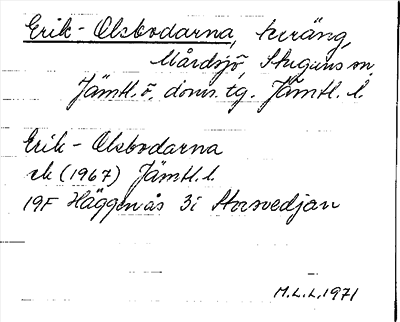 Erik-Olsbodarna, teräng,
Mårdsjö, Stuguns sn,
Jämtl. ö. doms. tg. Jämtl. l.
Erik-Olsbodarna
ek (1967) Jämtl. l.
19F Häggenås 3i Storsvedjan
M.L.L. 1971